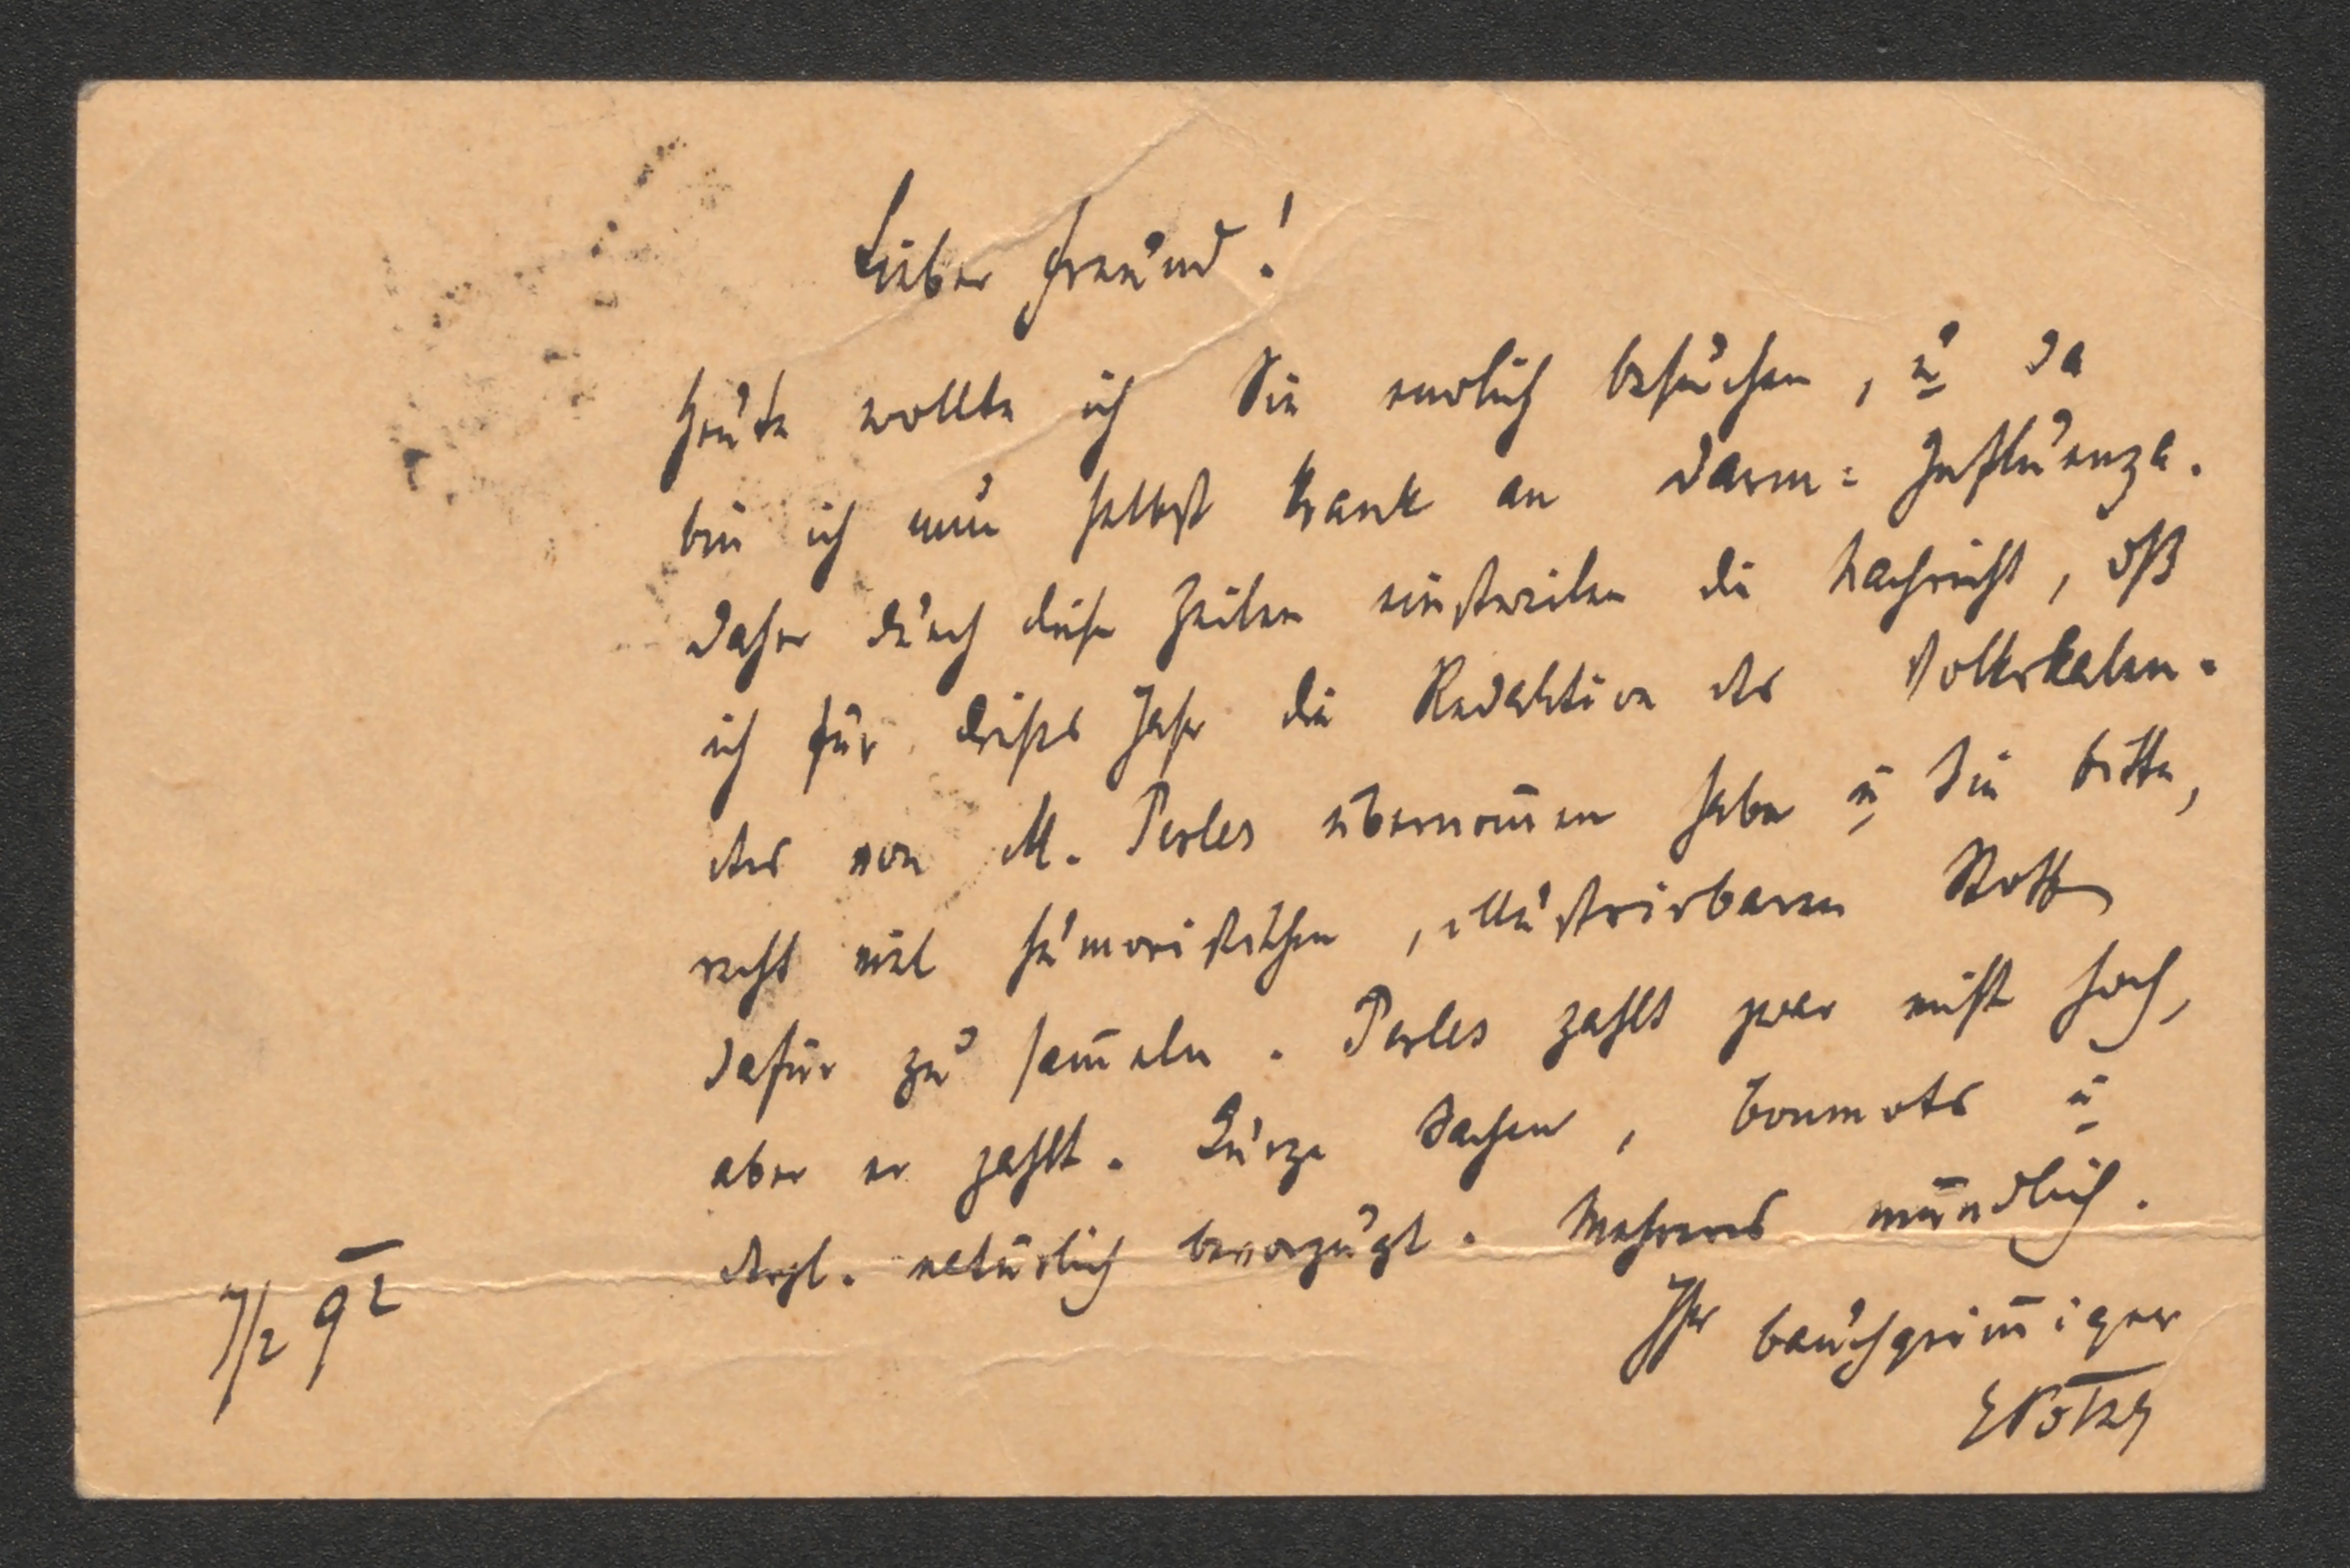 Lieber Freund!
Heute wollte ich Sie endlich besuchen, u da
bin ich nun selbst krank an Darm=Influenza.
Daher durch diese Zeilen einstweilen die Nachricht, dß
ich für dieses Jahr die Redaktion des Volkskalen-
ders von M. Perles übernom̅en habe u Sie bitte,
recht viel humoristischen, illustrirbaren Stoff
dafür zu sam̅eln. Perles zahlt zwar nicht hoch,
aber er zahlt. Kurze Sachen, Bonmots u
dergl. natürlich bevorzugt. Mehreres mündlich.
Ihr bauchgrim̅iger
7/2 92